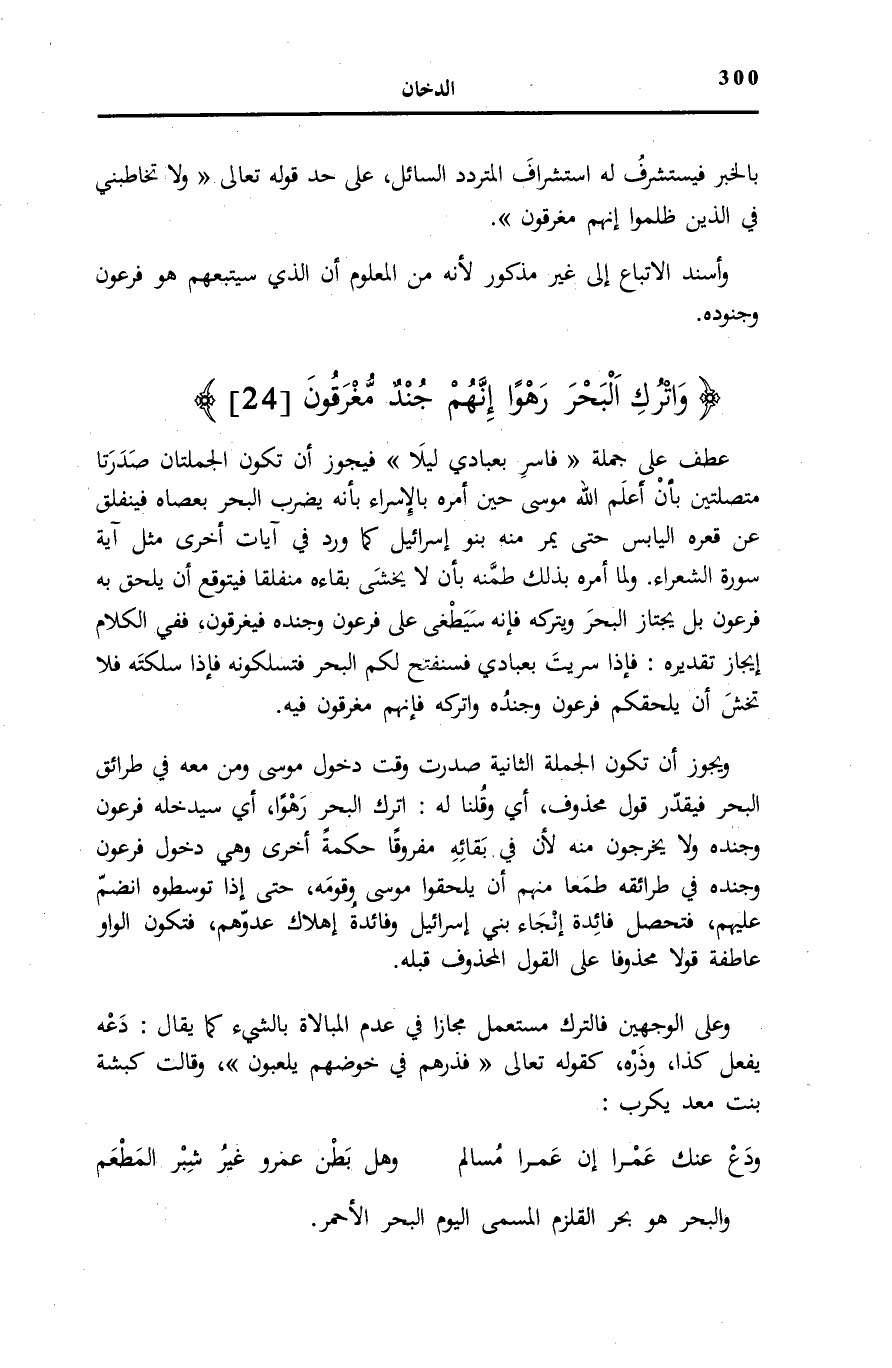 300
الدخان
بالخبر فيستشرفُ له استشرافَ المتردد السائل، على حد قوله تعالى « ولا تخاطبني
في الذين ظلموا إنهم مغرقون ».
وأسند الاتباع إلى غير مذكور لأنه من المعلوم أن الذي سيتبعهم هو فرعون
وجنوده.
﴿ وَاتْرُكِ اَلْبَحْرَ رَهْوًا إِنَّهُمْ جُنْدٌ مُّغْرَقُونَ [24] ﴾
عطف على جملة « فاسرِ بعبادي ليلًا » فيجوز أن تكون الجملتان صَدَرَتا
متصلتين بأنْ أَعلَم الله موسى حين أمره بالإسراء بأنه يضرب البحر بعصاه فينفلق
عن قعره اليابس حتى يمر منه بنو إسرائيل كما ورد في آيات أخرى مثل آية
سورة الشعراء. ولما أمره بذلك طمَّنه بأن لا يخشَى بقاءه منفلقا فيتوقع أن يلحق به
فرعون بل يجتاز البحرَ ويتركه فإنه سَيَطْغى على فرعون وجنده فيغرقون، ففي الكلام
إيجاز تقديره : فإذا سريتَ بعبادي فسنفتح لكم البحر فتسلكونه فإذا سلكتَه فلا
تخشَ أن يلحقكم فرعون وجندُه واتركه فإنهم مغرقون فيه.
ويجوز أن تكون الجملة الثانية صدرت وقت دخول موسى ومن معه في طرائق
البحر فيقدّر قول محذوف، أي وقُلنا له : اترك البحر رَهْوًا، أي سيدخله فرعون
وجنده ولا يخرجون منه لأن في بَقائِهِ مفروقًا حكمةً أخرى وهي دخول فرعون
وجنده في طرائقه طمَعا منهم أن يلحقوا موسى وقومَه، حتى إذا توسطوه انضمّ
عليهم، فتحصل فائِدة إنْجَاء بني إسرائيل وفائدةُ إهلاك عدوّهم، فتكون الواو
عاطفة قولا محذوفا على القول المحذوف قبله.
وعلى الوجهين فالترك مستعمل مجازا في عدم المبالاة بالشيء كما يقال : دَعْه
يفعل كذا، وذَرْه، كقوله تعالى « فذرهم في خوضهم يلعبون »، وقالت كبشة
بنت معد يكرب :
ودَعْ عنك عَمْرا إن عَمرا مُسالم وهل بَطْن عمرو غيرُ شِبْر المَطْعَم
والبحر هو بحر القلزم المسمى اليوم البحر الأحمر.